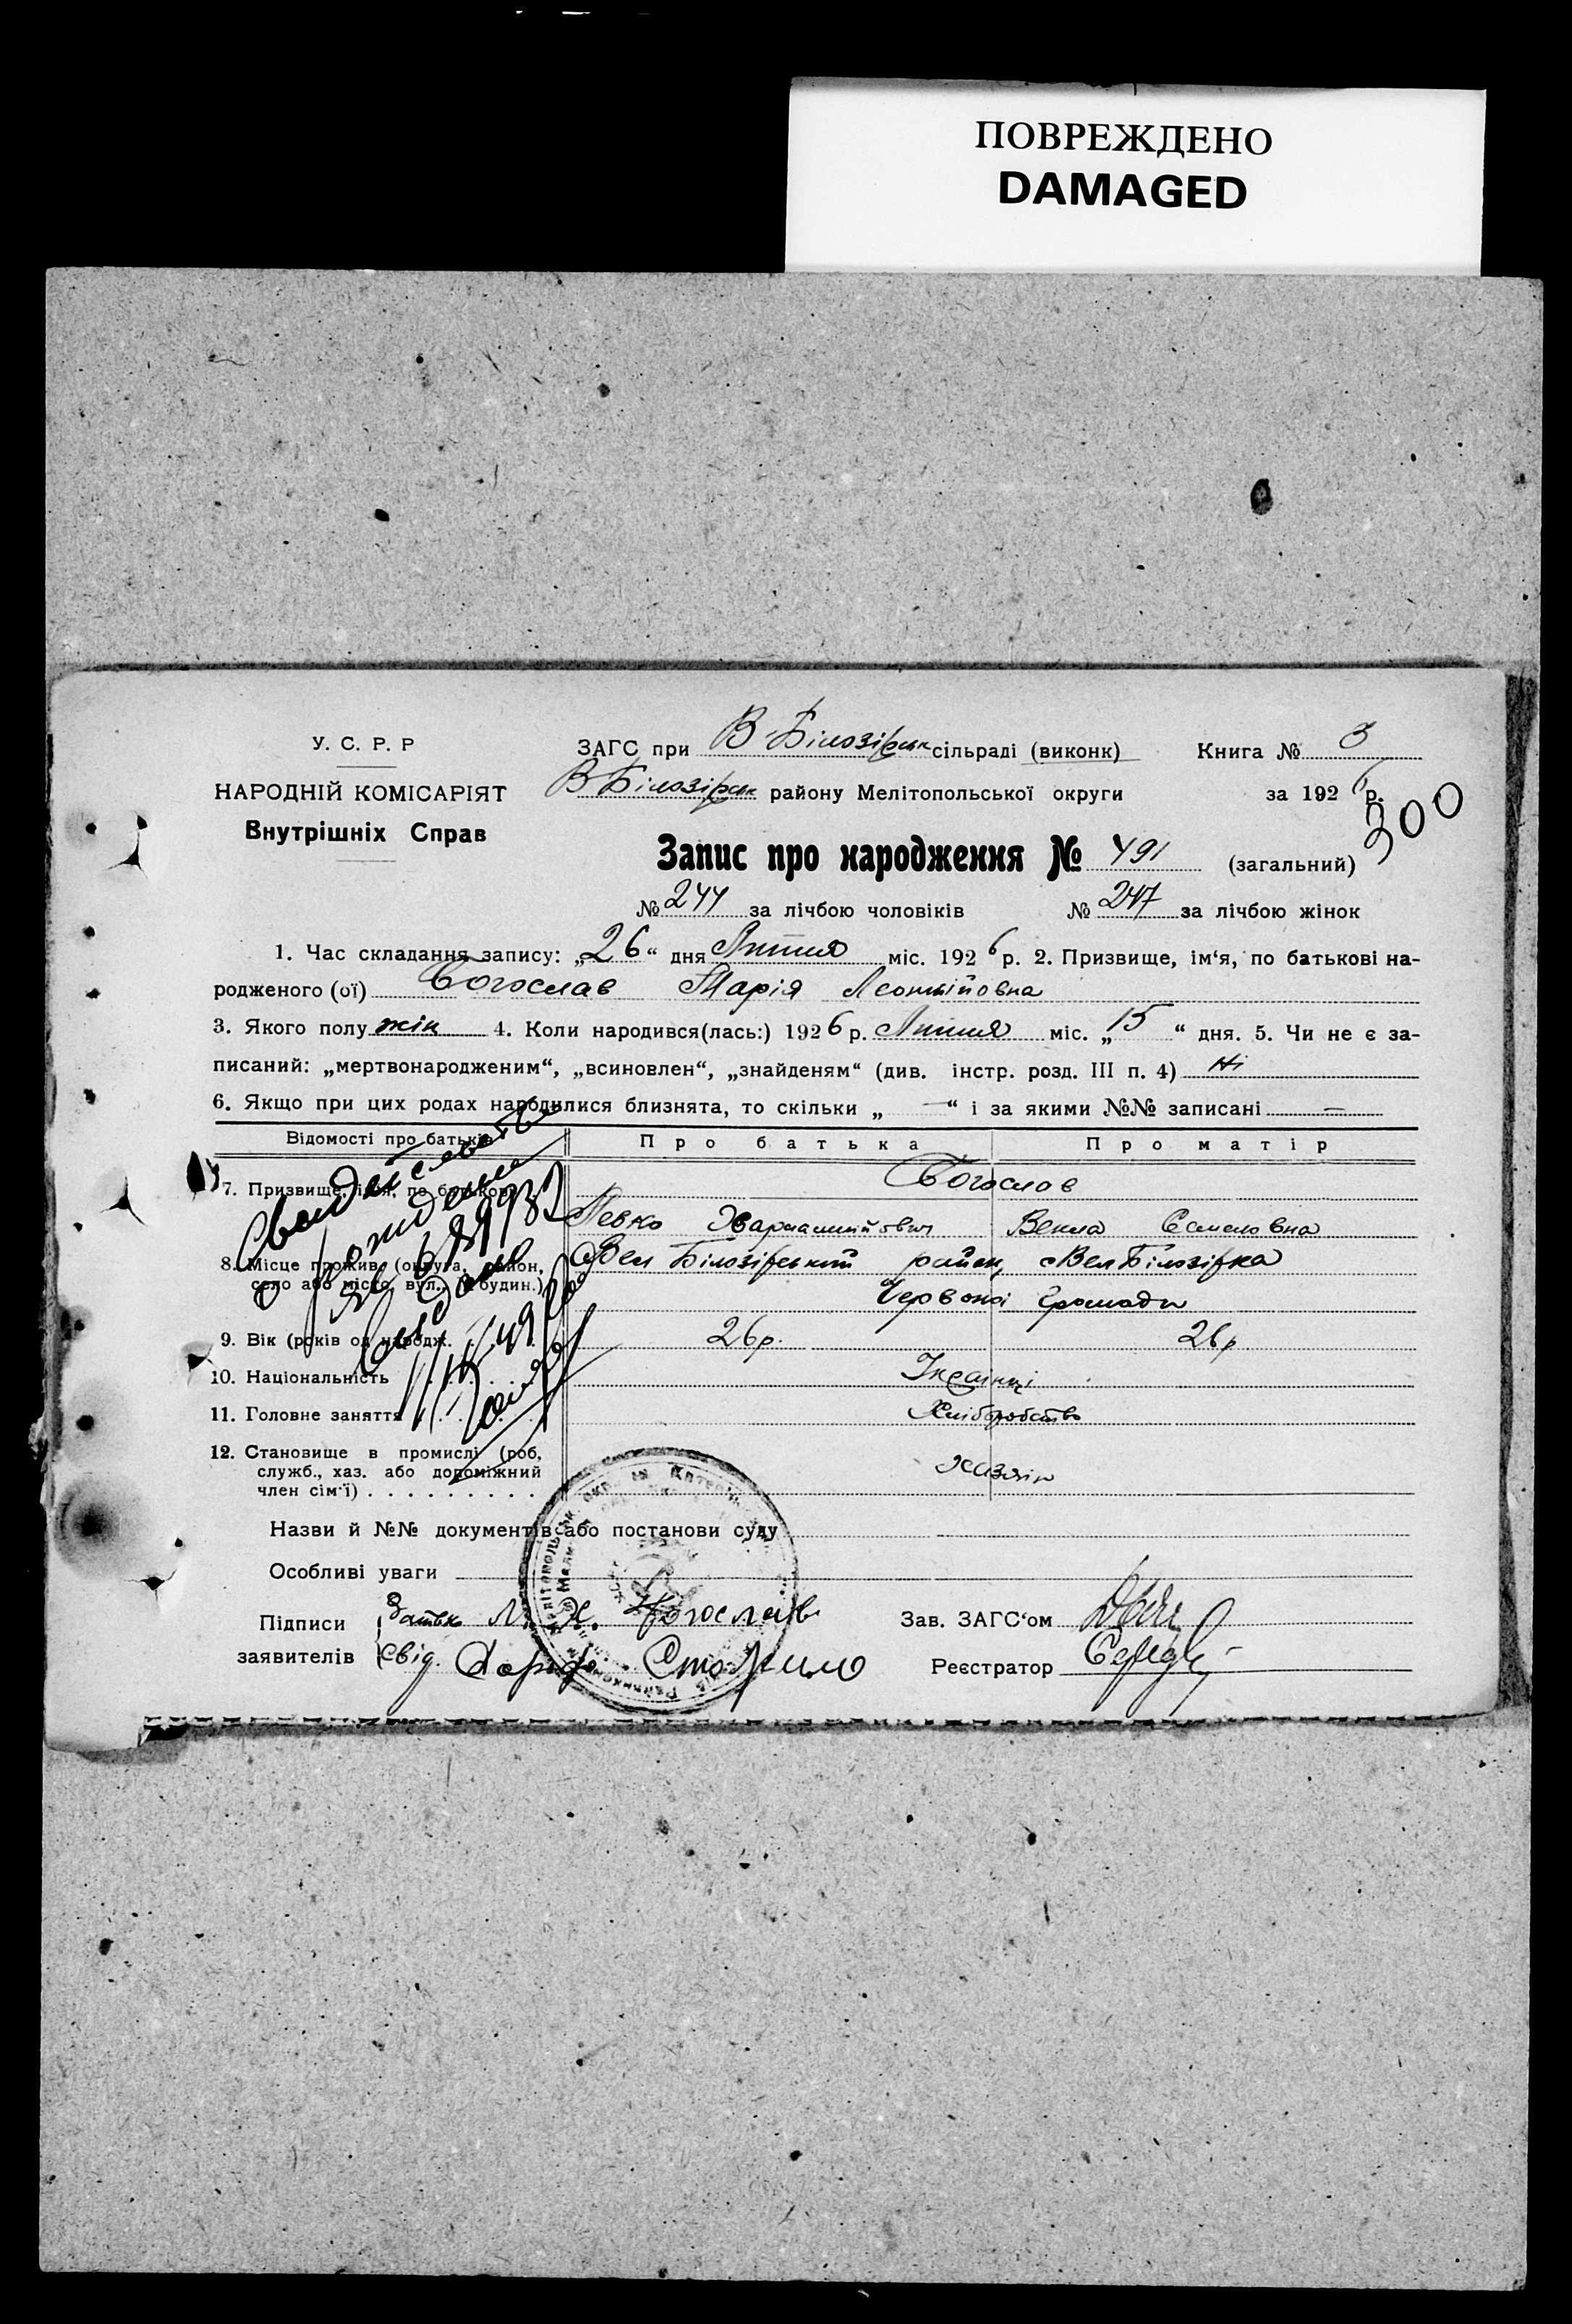 ПОВРЕЖДЕНО
DAMAGED
У. С. Р. Р
НАРОДНІЙ КОМІСАРІЯТ
Внутрішніх Справ
ЗАГС при В-Білозірськ сільраді (виконк) Книга № 3
В Білозірськ району Мелітопольської округи за 1926 р.
300
Запис про народження № 491 (загальний)
№ 244 за лічбою чоловіків № 247 за лічбою жінок
1. Час складання запису: „26“ дня Липня міс. 1926 р. 2. Призвище, ім‘я, по батькові на-
родженого (ої) Богослав Марія Леонтійовна
3. Якого полу жін 4. Коли народився(лась:) 1926 р. Липня міс. „15“ дня. 5. Чи не є за-
писаний: „мертвонародженим“, „всиновлен“, „знайденям“ (див. інстр. розд. III п. 4) Ні
6. Якщо при цих родах народилися близнята, то скільки „—“ і за якими №№ записані —
Відомості про батьків Про батька Про матір
7. Призвище, ім‘я, по батькові Богослав
Левко Харлампійович Векла Семеловна
8. Місце прожив. (округа, район, Вел Білозірський район, с Вел Білозірка
село або місто, вул., № будин.) Червоної Громади
9. Вік (років од народж. 26 р. 26 р
10. Національність Українці
11. Головне заняття Хліборобство
12. Становище в промислі (роб,
служб., хаз. або допоміжний Хазяін
член сім‘ї)
Свидетельство
о рождении
Назви й №№ документів або постанови суду
Особливі уваги
Підписи Батько Л. Х. Богослав Зав. ЗАГС‘ом
заявителів Свід. Реєстратор